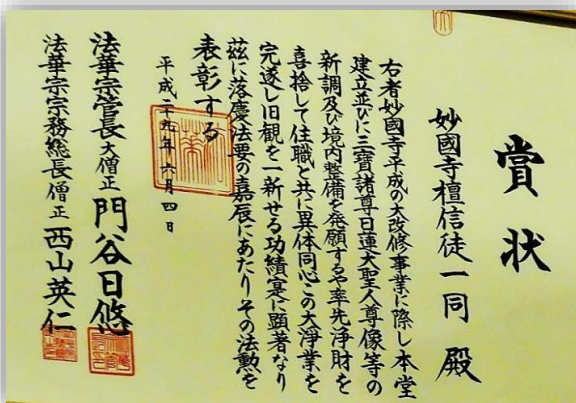 賞状
妙國寺檀信徒一同 殿
右者妙國寺平成の大改修事業に際し本堂
建立並びに三寶諸尊日蓮大聖人尊像等の
新調及び境内整備を発願するや率先浄財を
喜捨して住職と共に異体同心この大浄業を
完遂し旧観を一新せる功績寔に顕著なり
茲に落慶法要の嘉辰にあたりその法勲を
表彰する
平成二十九年六月四日
法華宗管長大僧正 門谷日悠
法華宗宗務総長僧正 西山英仁